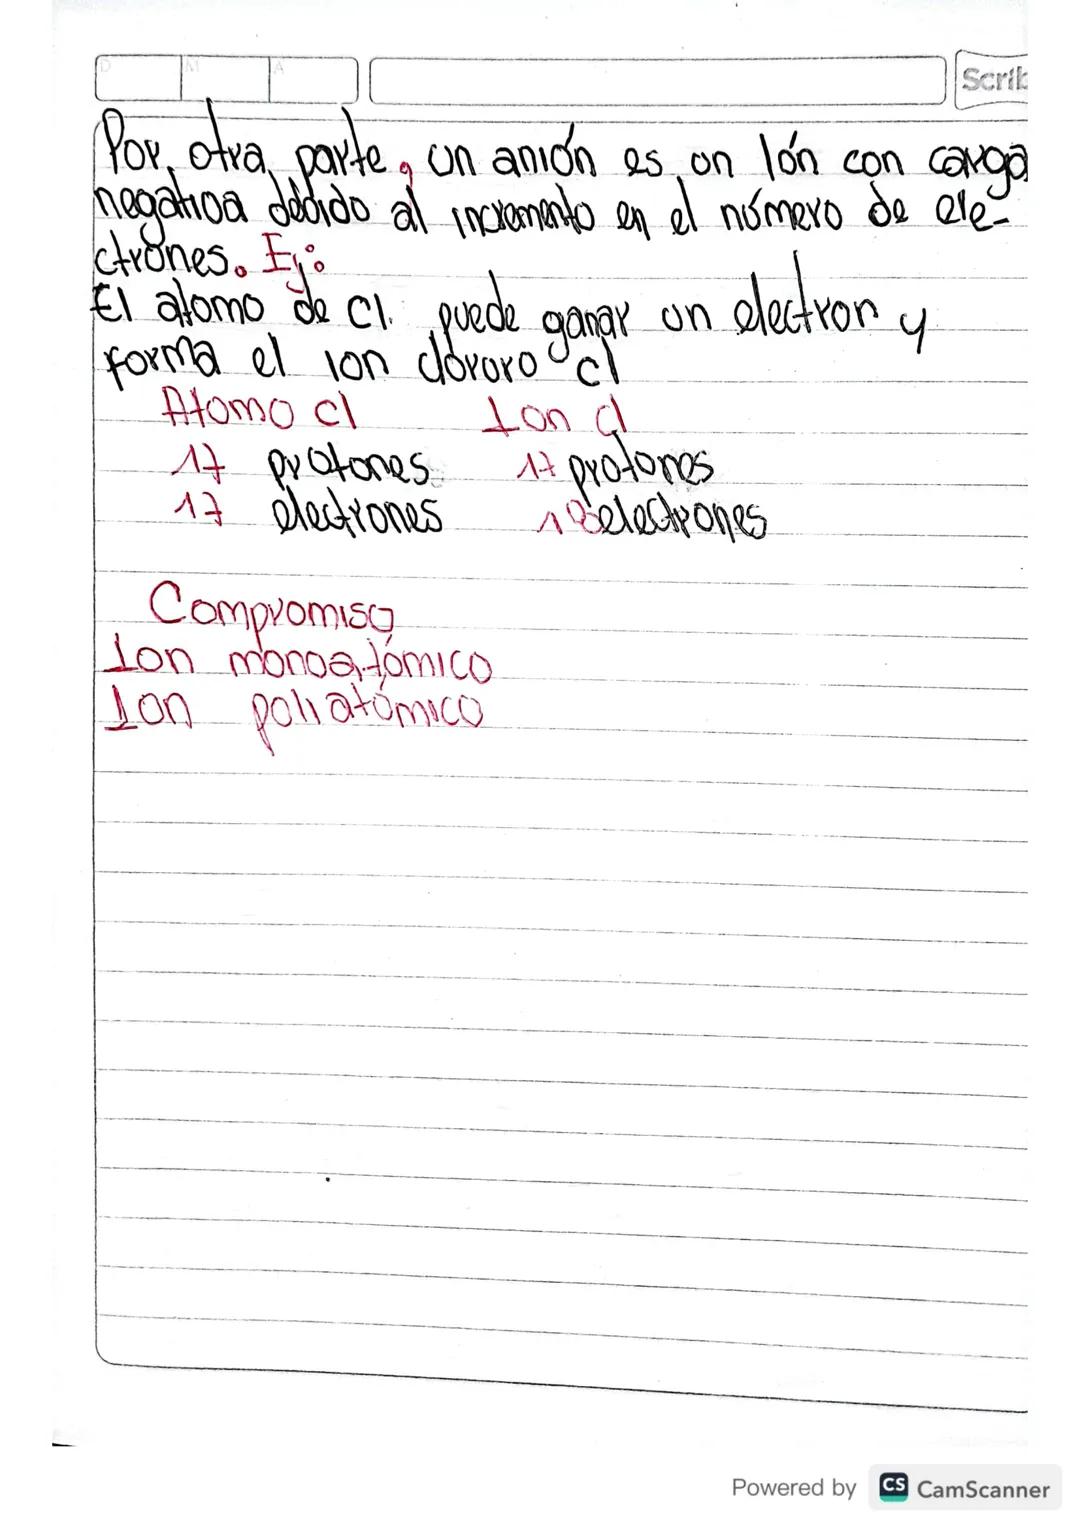 D M A
Scrib
Por otra parte, un anión es un Ión con carga
negativa debido al incremento en el número de ele-
ctrones. Ej:
El atomo de Cl. puede ganar un electron y
forma el ion cloruro cl
Atomo cl Ion cl
17 protones 17 protones
17 electrones 18 electrones
Compromiso
Ion monoatómico
Ion poliatómico
Powered by CS CamScanner